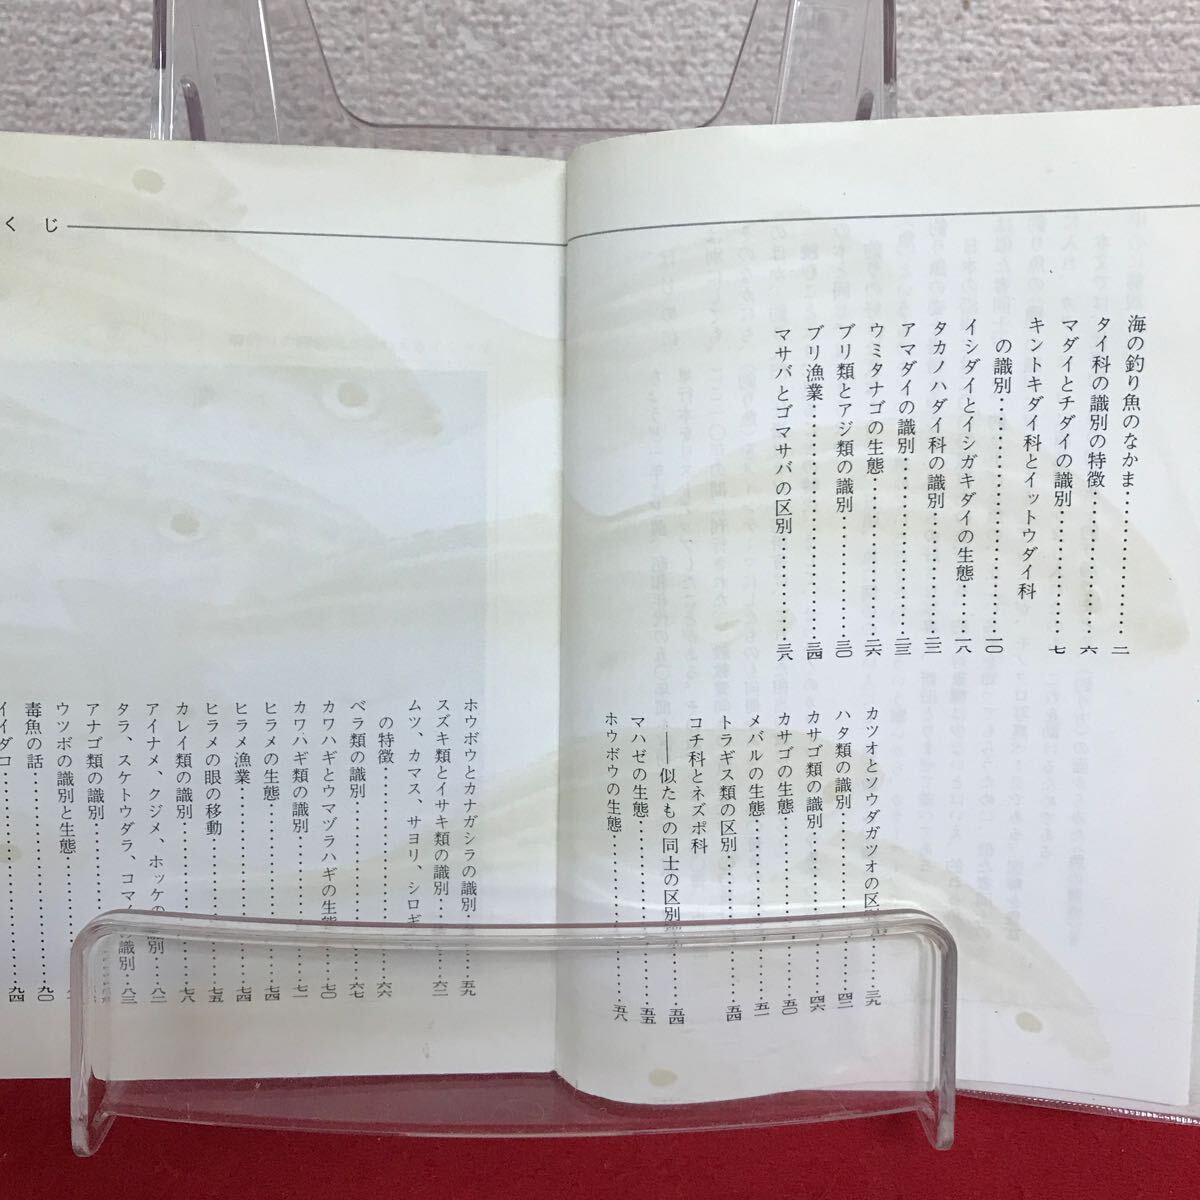 くじ
海の釣り魚のなかま……………………二
タイ科の識別の特徴……………………六
マダイとチダイの識別…………………七
キントキダイ科とイットウダイ科
の識別……………………一〇
イシダイとイシガキダイの生態………一八
タカノハダイ科の識別…………………二三
アマダイの識別…………………………二三
ウミタナゴの生態………………………二六
ブリ類とアジ類の識別…………………三〇
ブリ漁業…………………………………三四
マサバとゴマサバの区別………………三八
カツオとソウダガツオの区別…………三九
ハタ類の識別……………………………四二
カサゴ類の識別…………………………四六
カサゴの生態……………………………五〇
メバルの生態……………………………五一
トラギス類の区別………………………五四
コチ科とネズポ科
――似たもの同士の区別……五四
マハゼの生態……………………………五五
ホウボウの生態…………………………五八
ホウボウとカナガシラの識別…………五九
スズキ類とイサキ類の識別……………六二
ムツ、カマス、サヨリ、シロギ
の特徴……………………六六
ベラ類の識別……………………………六七
カワハギとウマヅラハギの生態………七〇
カワハギ類の識別………………………七一
ヒラメの生態……………………………七四
ヒラメ漁業………………………………七四
ヒラメの眼の移動………………………七五
カレイ類の識別…………………………七八
アイナメ、クジメ、ホッケの識別……八二
タラ、スケトウダラ、コマイの識別…八三
アナゴ類の識別…………………………
ウツボの識別と生態……………………
毒魚の話…………………………………九〇
イイダコ…………………………………九四